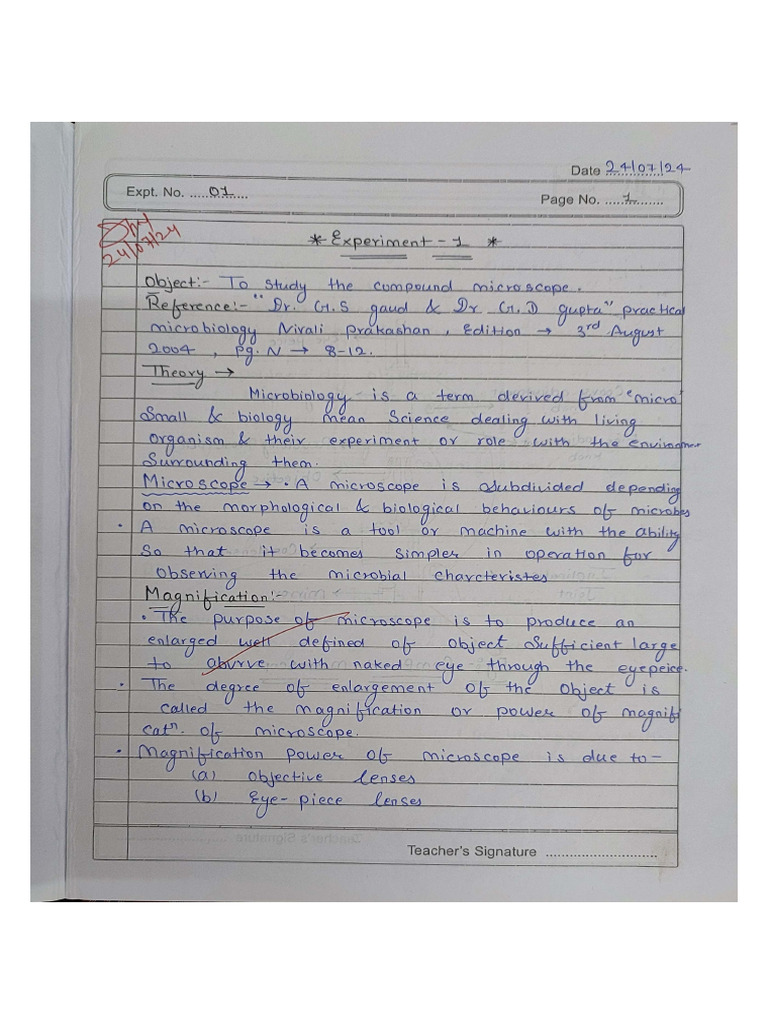 Date 24/07/24
Expt. No. ..... 01 .....
Page No. ..... 1 ........
24/07/24
* Experiment - 1 *
Object:- To study the compound microscope.
Reference:- "Dr. G.S gaud & Dr G.D gupta" practical
microbiology Nirali prakashan, Edition → 3rd August
2004, Pg. N → 8-12.
Theory →
Microbiology is a term derived from "micro"
Small & biology mean Science dealing with living
organism & their experiment or role with the enviroment
Surrounding them.
Microscope → • A microscope is subdivided depending
on the morphological & biological behaviours of microbes
• A microscope is a tool or machine with the ability
So that it becomes simpler in operation for
observing the microbial charcteristes
Magnification:-
• The purpose of microscope is to produce an
enlarged well defined of object Sufficient large
to abvrve with naked eye through the eyepeice.
• The degree of enlargement of the object is
called the magnification or power of magnifi
catn. of microscope.
• Magnification power of microscope is due to -
(a) objective lenses
(b) Eye-piece lenses
Teacher's Signature ............................